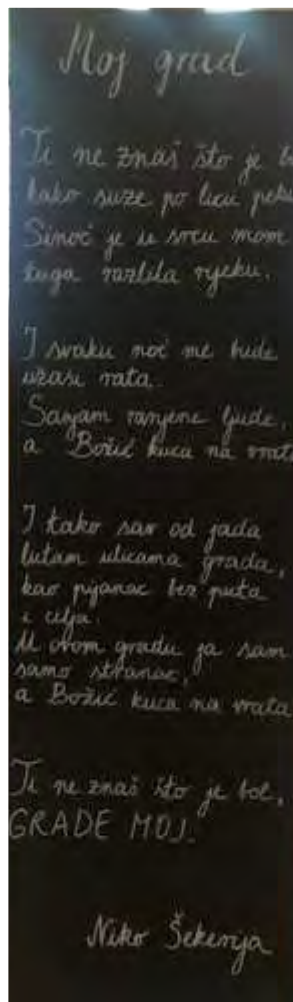 Moj grad
Ti ne znaš što je b
kako suze po licu peku
Sinoć je u srcu mom
tuga razlila rijeku.
I svaku noć me bude
užasi rata.
Sanjam ranjene ljude,
a Božić kuca na vrata
I tako sav od jada
lutam ulicama grada,
kao pijanac bez puta
i cilja.
U ovom gradu ja sam
samo stranac,
a Božić kuca na vrata
Ti ne znaš što je bol,
GRADE MOJ.
Niko Šekerija